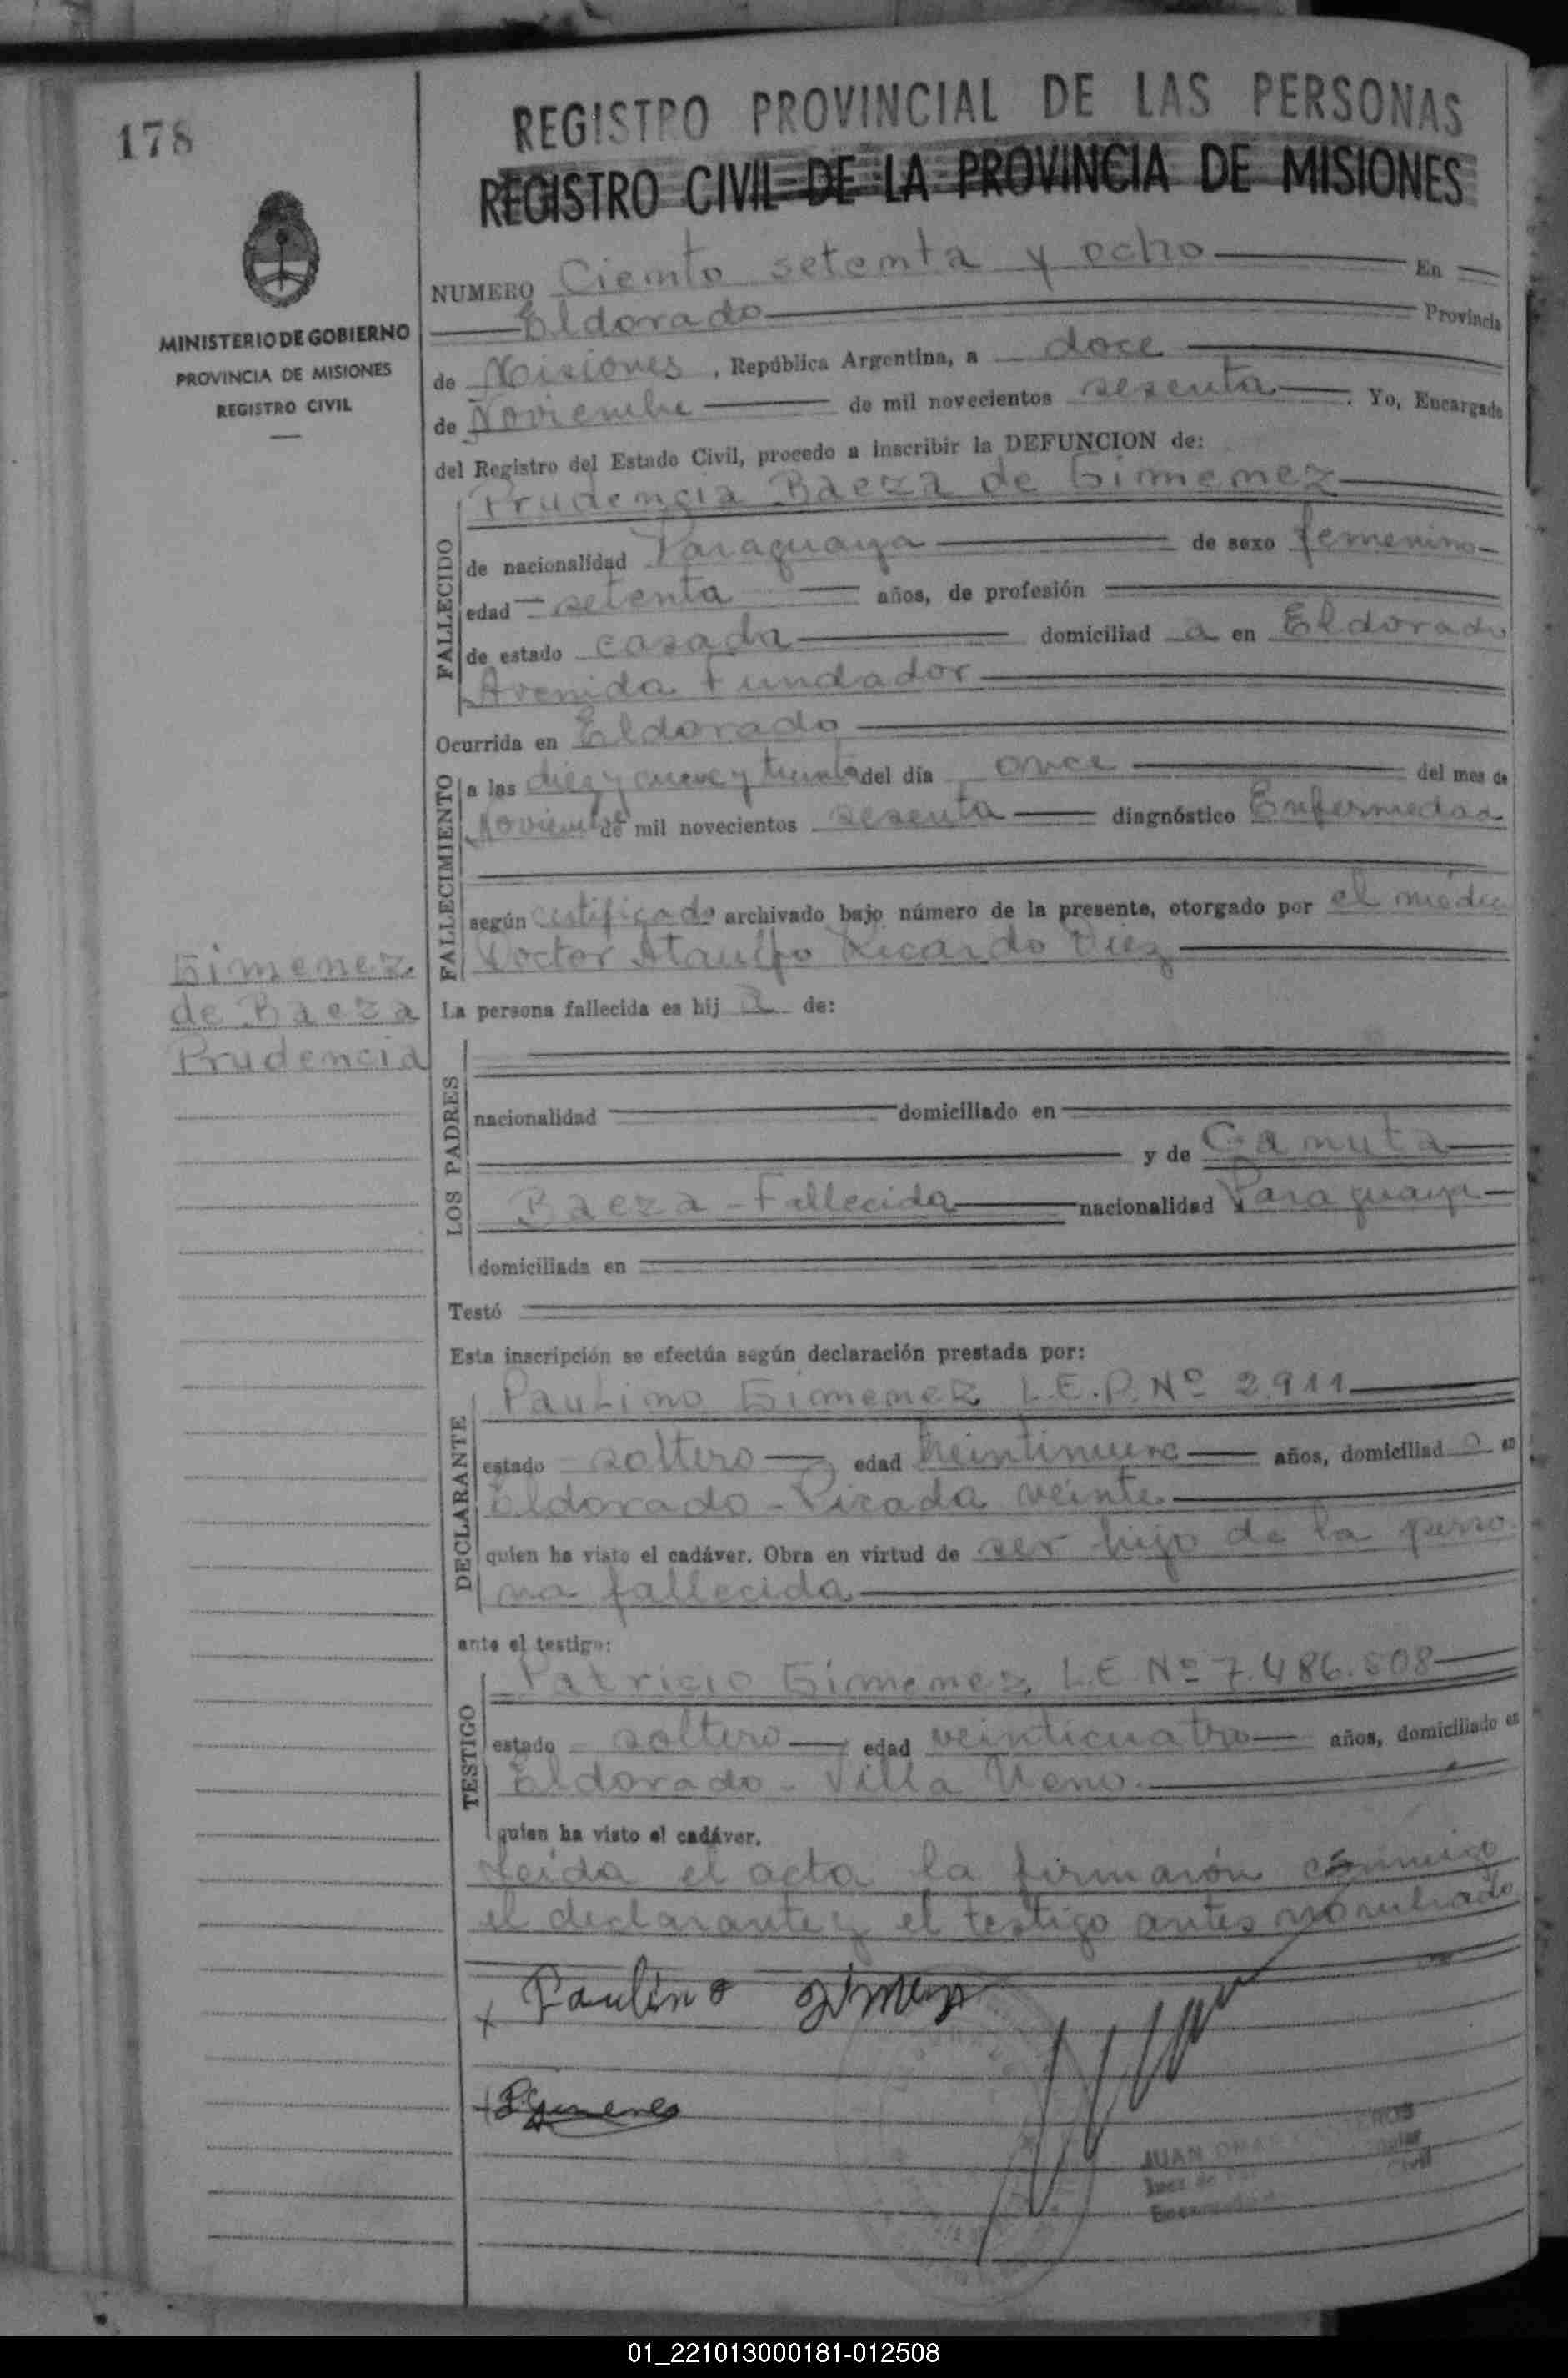 178
REGISTRO PROVINCIAL DE LAS PERSONAS
REGISTRO CIVIL DE LA PROVINCIA DE MISIONES
MINISTERIO DE GOBIERNO
PROVINCIA DE MISIONES
REGISTRO CIVIL
NUMERO Ciento setenta y ocho En
Eldorado Provincia
de Misiones, República Argentina, a doce
de Noviembre de mil novecientos sesenta. Yo, Encargado
del Registro del Estado Civil, procedo a inscribir la DEFUNCION de:
FALLECIDO
Prudencia Baeza de Gimenez
de nacionalidad Paraguaya de sexo femenino
edad setenta años, de profesión
de estado casada domiciliad a en Eldorado
Avenida Fundador
Ocurrida en Eldorado
FALLECIMIENTO
a las diez y nueve y treinta del día once del mes de
Noviembre de mil novecientos sesenta diagnóstico Enfermedad
según certificado archivado bajo número de la presente, otorgado por el médic
Doctor Ataulfo Ricardo Diez
Gimenez
de Baeza
Prudencia
La persona fallecida es hij a de:
LOS PADRES
nacionalidad domiciliado en
y de Canuta
Baeza - Fallecida nacionalidad Paraguaya
domiciliada en
Testó
Esta inscripción se efectúa según declaración prestada por:
DECLARANTE
Paulino Gimenez L.E.P. Nº 2.911
estado soltero edad veintinueve años, domiciliad o en
Eldorado - Picada veinte
quien ha visto el cadáver. Obra en virtud de ser hijo de la perso
na fallecida
ante el testigo:
TESTIGO
Patricio Gimenez L.E Nº 7.486.508
estado soltero edad veinticuatro años, domiciliado en
Eldorado - Villa
quien ha visto el cadáver.
Leida el acta la firmarón conmigo
el declarante y el testigo antes nombrado
Paulino
JUAN
01_221013000181-012508